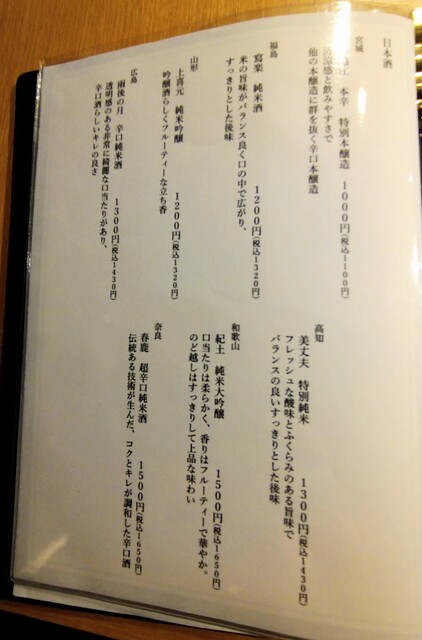 日本酒
宮城
本辛 特別本醸造 1000円(税込1100円)
清涼感と飲みやすさで
他の本醸造に群を抜く辛口本醸造
福島
寫楽 純米酒 1200円(税込1320円)
米の旨味がバランス良く口の中で広がり、
すっきりとした後味
山形
上喜元 純米吟醸 1200円(税込1320円)
吟醸酒らしくフルーティーな立ち香
広島
雨後の月 辛口純米酒 1300円(税込1430円)
透明感のある非常に綺麗な口当たりがあり、
辛口酒らしいキレの良さ
高知
美丈夫 特別純米 1300円(税込1430円)
フレッシュな酸味とふくらみのある旨味で
バランスの良いすっきりとした後味
和歌山
紀土 純米大吟醸 1500円(税込1650円)
口当たりは柔らかく、香りはフルーティーで華やか。
のど越しはすっきりして上品な味わい
奈良
春鹿 超辛口純米酒 1500円(税込1650円)
伝統ある技術が生んだ、コクとキレが調和した辛口酒